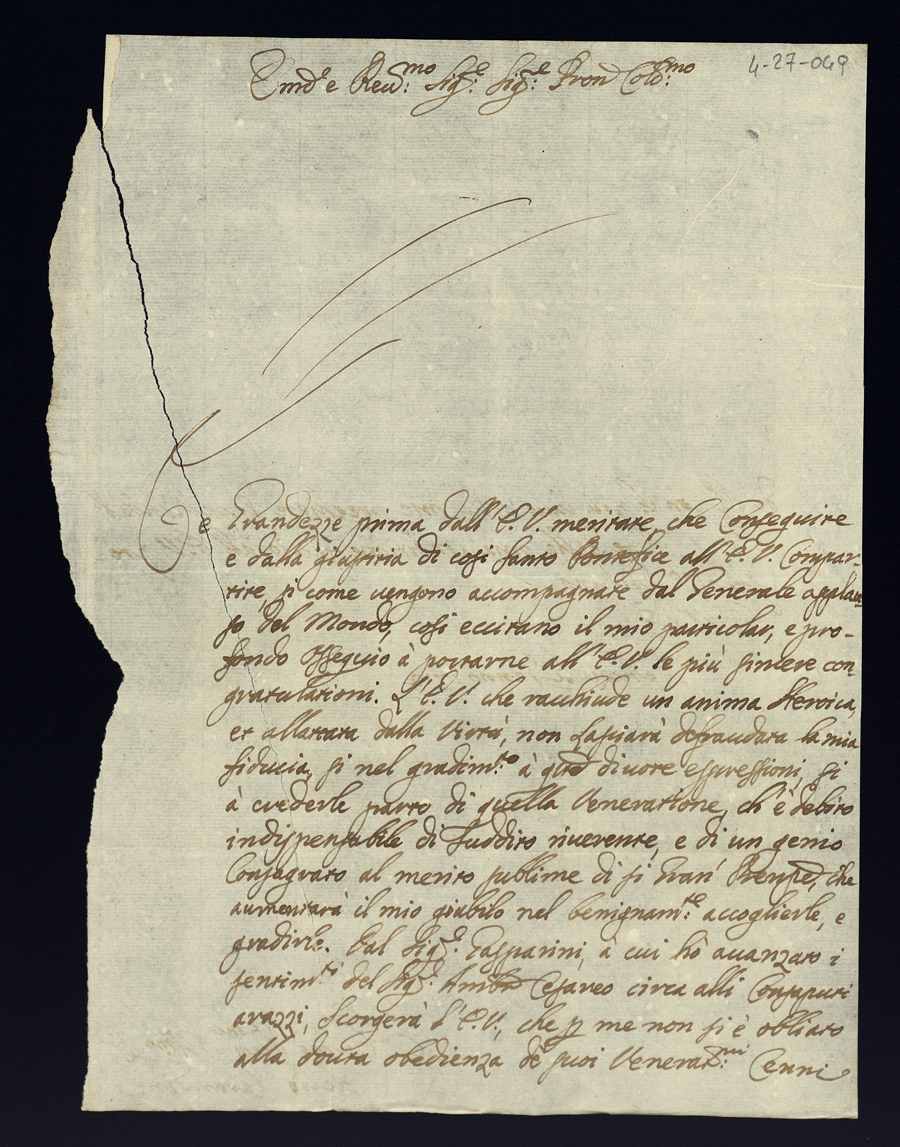 4-27-049
Em.o e Reu:mo Sig:e Sig:e Pron Col:mo
Le Grandezze prima dall' E. V. meritate, che Conseguite
e dalla giustitia di cosi Santo Pontefice all' E. V. Compar-
tite, si come uengono accompagnate dal Generale applau-
so del Mondo, cosi eccitano il mio particolar, e pro-
fondo Ossequio à portarne all' E. V. le più sincere con
gratulationi. L' E. V. che racchiude un anima Heroica,
et allattata dalla Virtà, non lasciarà defraudata la mia
fiducia, si nel gradim:to à q.te diuote espressioni, si
à crederle parto di quella Veneratione, ch' è debito
indispensabile di Suddito riuerente, e di un genio
Consagrato al merito sublime di si Gran' Prenpe, che
aumentarà il mio giubilo nel benignam:te accoglierle, e
gradirle. Dal Sig:e Gasparini, à cui hò auanzato i
sentim:ti del Sig:e Amb.r Cesareo circa alli Consaputi
arazzi, Scorgerà l' E. V., che p me non si è obliato
alla douta obedienza de' suoi Venerat:mi Cenni